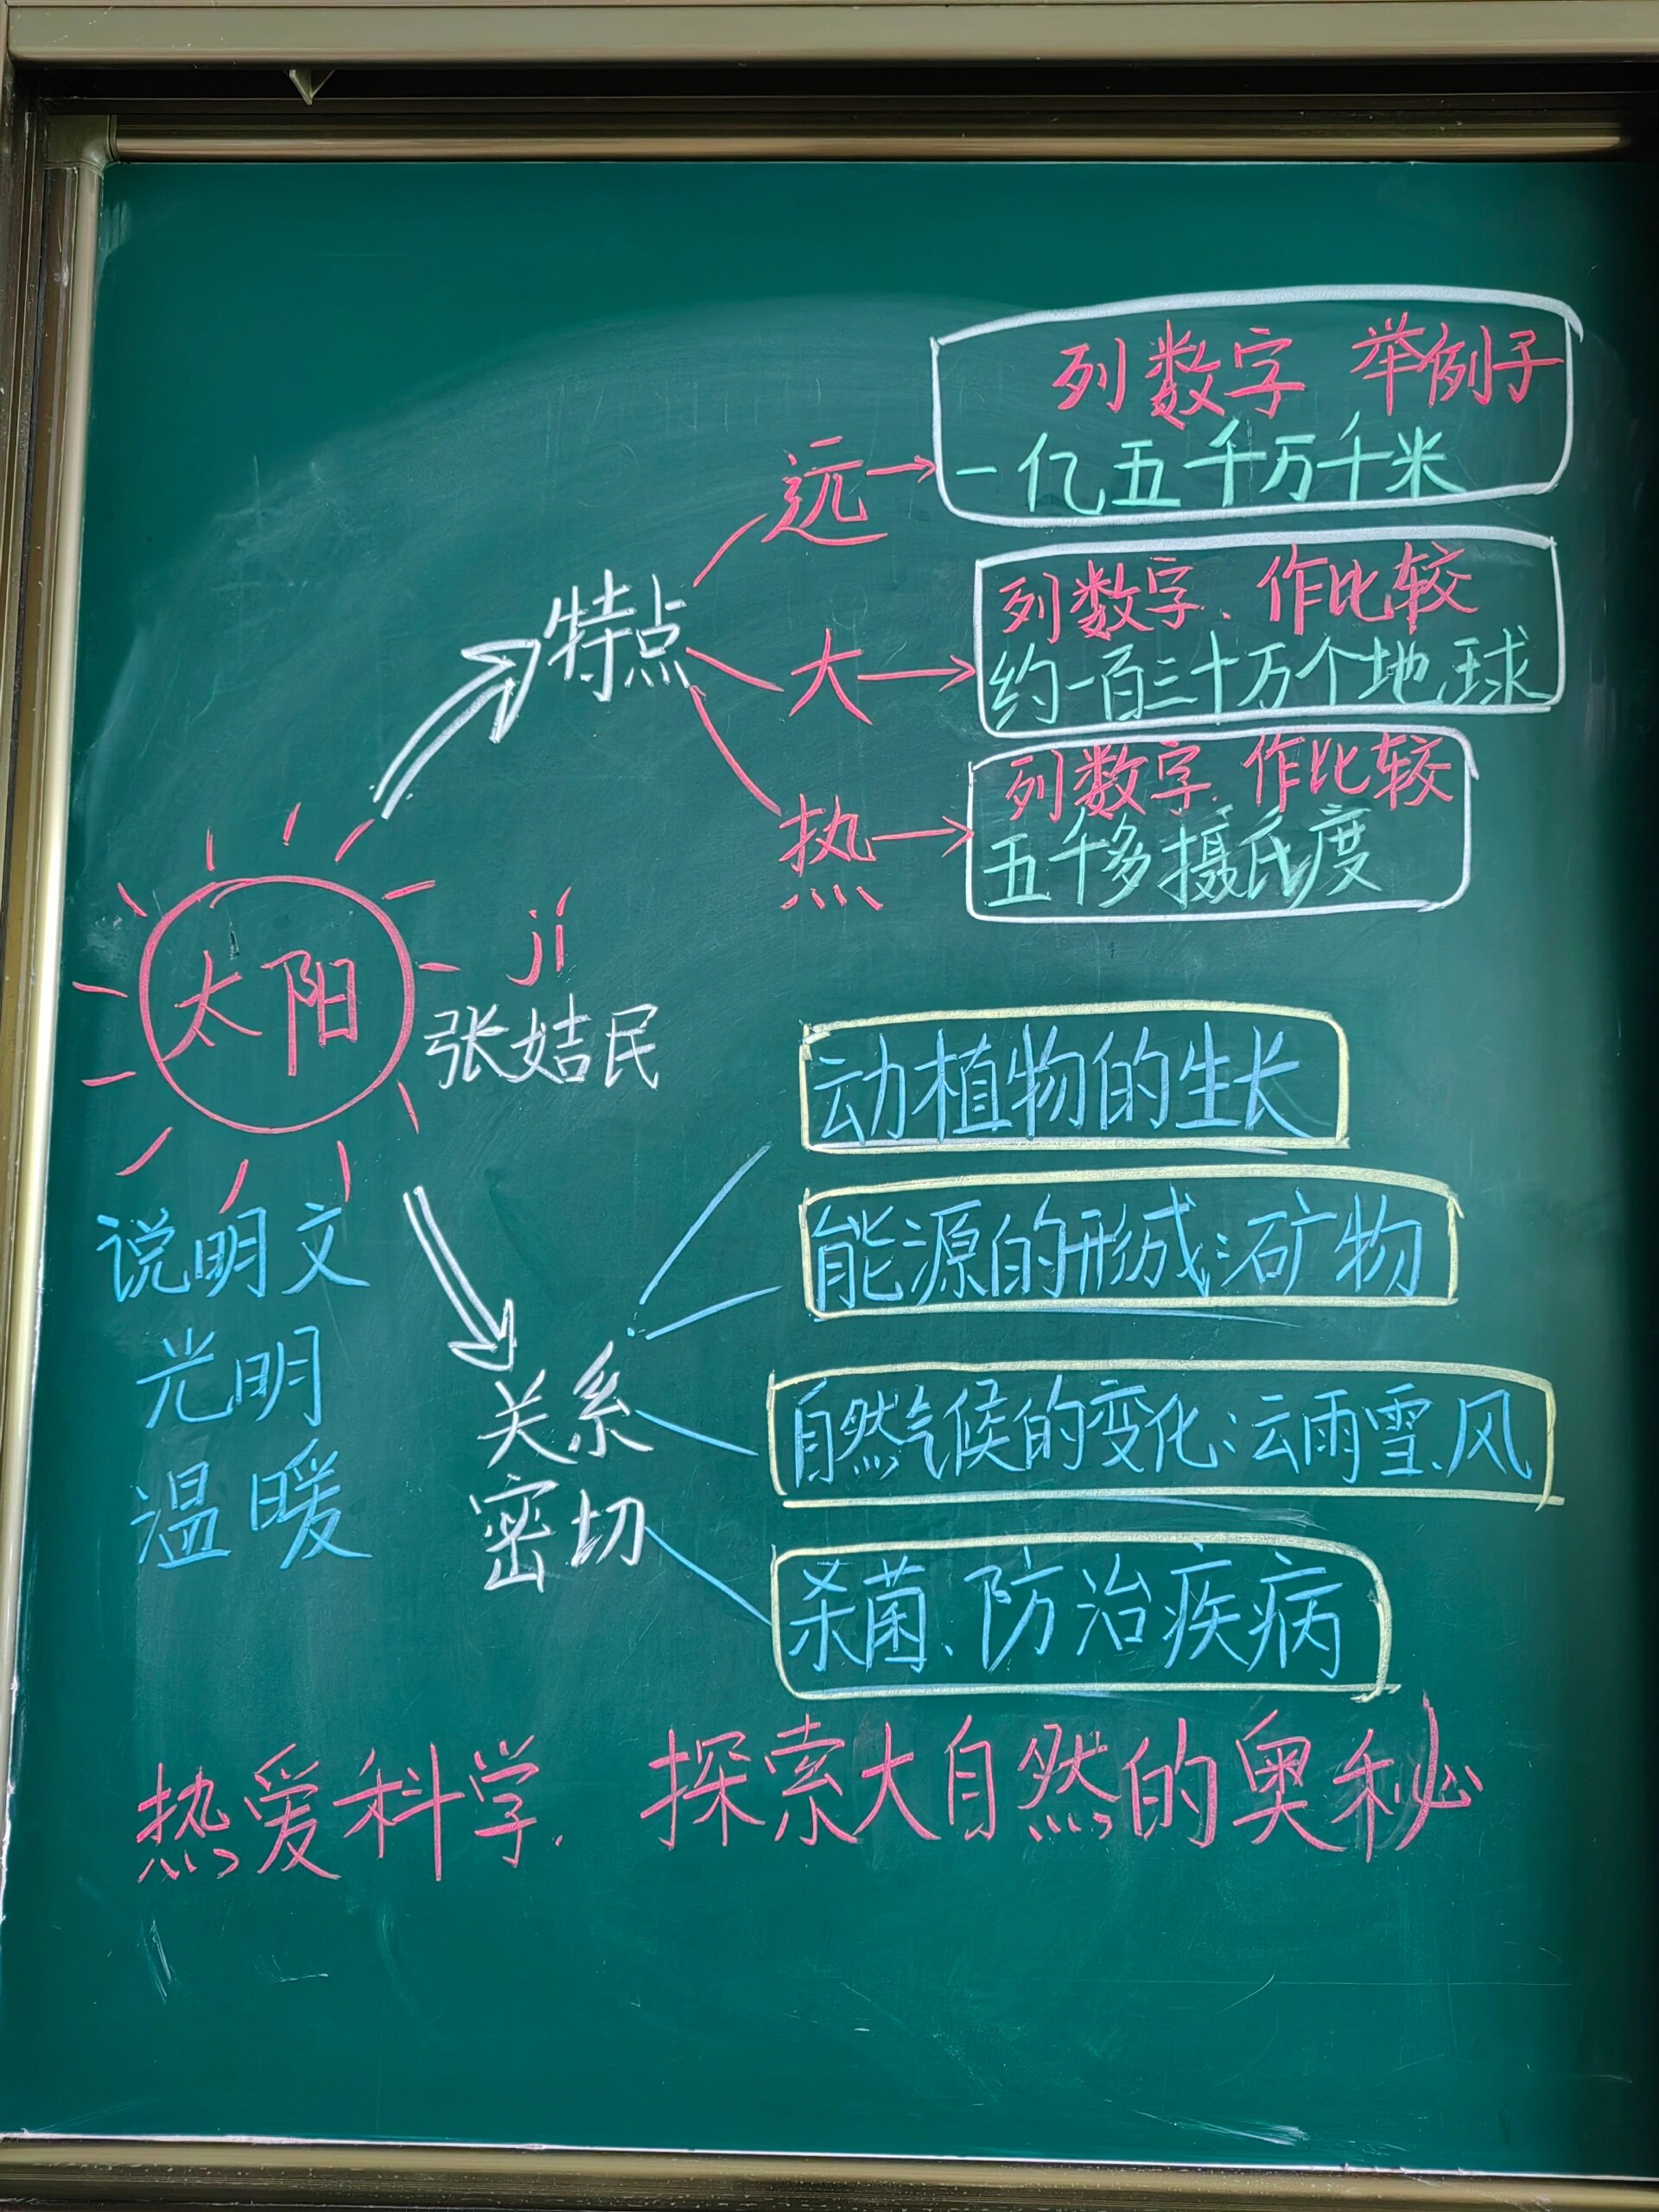 列数字 举例子
远→一亿五千万千米
特点
列数字、作比较
大→约一百三十万个地球
列数字、作比较
热→五千多摄氏度
太阳
jí
张姞民
说明文
光明
温暖
关系
密切
动植物的生长
能源的形成:矿物
自然气候的变化:云雨雪、风
杀菌、防治疾病
热爱科学、探索大自然的奥秘